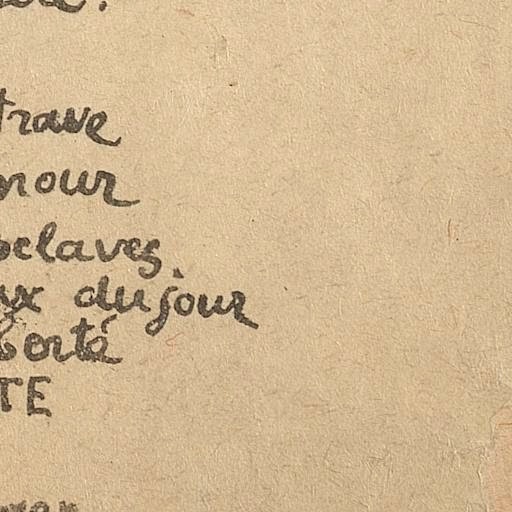 trave
mour
sclaves
ux du jour
berté
TE